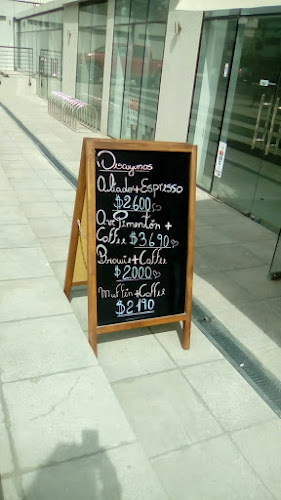 Desayunos
Aliado+Espresso
$2.600
Ave Pimentón +
Coffee $3.690
Brownie+Coffee
$2.000
Muffin+Coffee
$2.190